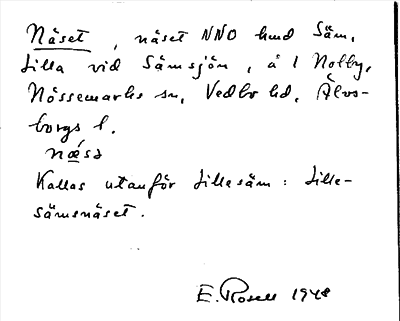 Näset, näset NNO hmd Säm,
Lilla vid Sämsjön, å 1 Nolby,
Nössemarks sn, Vedbo hd, Älvs-
borgs l.
næ̀sə
Kallas utanför Lillesäm: Lille-
sämsnäset.
E. Rosell 1948